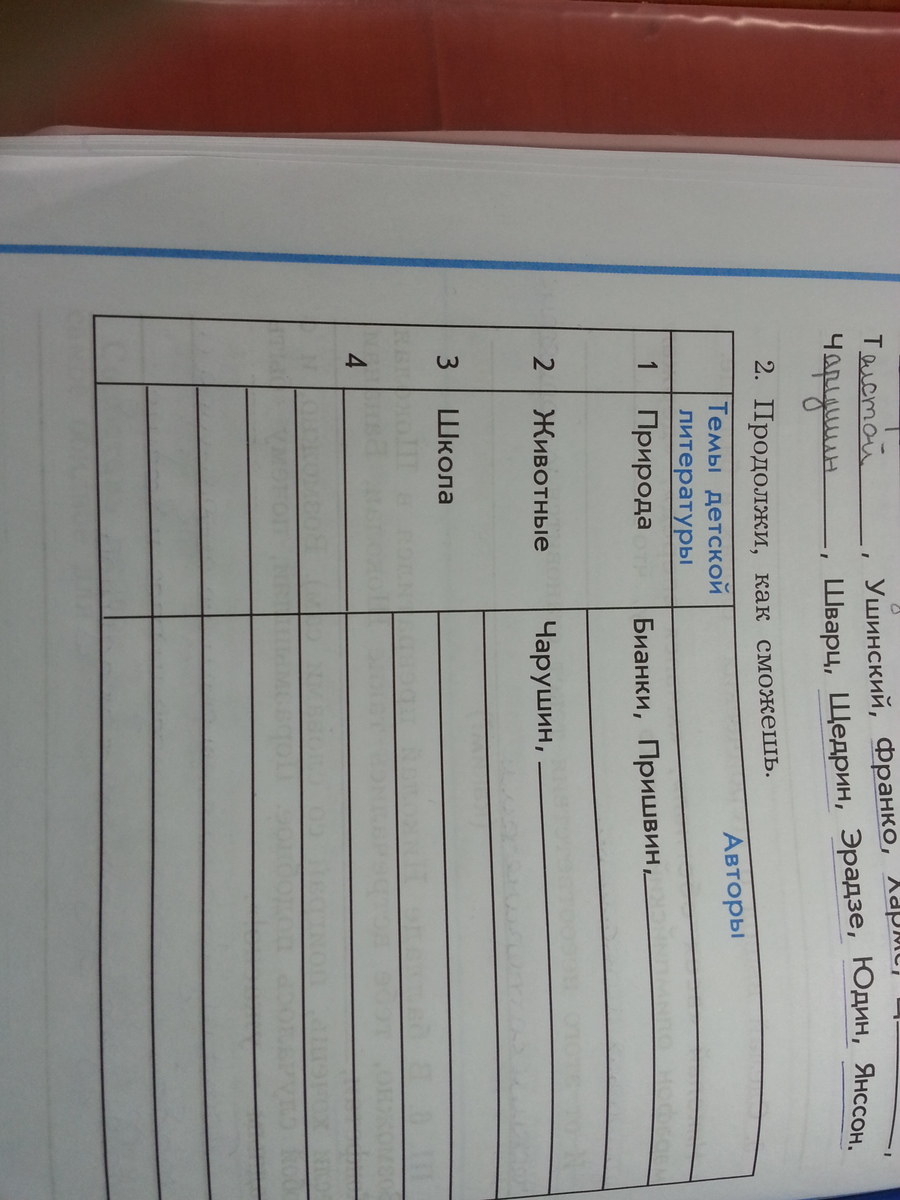 Толстой, Ушинский, франко, Хармс, Ц
Чарушин, Шварц, Щедрин, Эрадзе, Юдин, Янссон.
2. Продолжи, как сможешь.
Темы детской литературы Авторы
1 Природа Бианки, Пришвин,
2 Животные Чарушин,
3 Школа
4